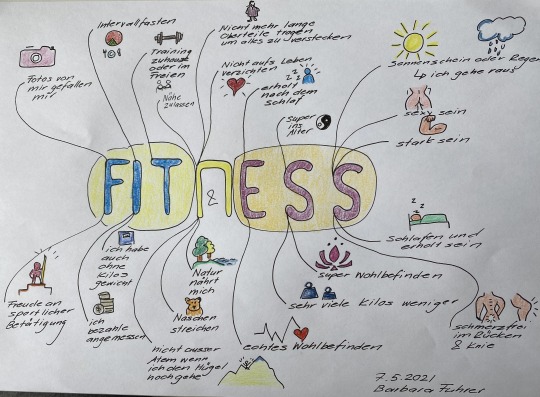 Intervallfasten
Nicht mehr lange
Oberteile tragen
um alles zu verstecken
Training
zuhause
oder im
Freien
Nähe
zulassen
Nicht aufs Leben
verzichten
erholt
nach dem
Schlaf
Sonnenschein oder Regen
Lp ich gehe raus
Fotos von
mir gefallen
mir
super
ins
Alter
sexy sein
stark sein
FITNESS
&
ich habe
auch
ohne
Kilos
gewicht
Natur
nährt
mich
Schlafen und
erholt sein
super Wohlbefinden
Freude an
sportlicher
Betätigung
ich
bezahle
angemessen
Naschen
streichen
sehr viele Kilos weniger
schmerzfrei
im Rücken
& Knie
nicht ausser
Atem wenn
ich den Hügel
hochgehe
echtes Wohlbefinden
7.5.2021
Barbara Fuhrer